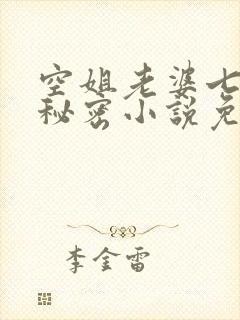 空姐老婆七
秘密小说免
李金雷